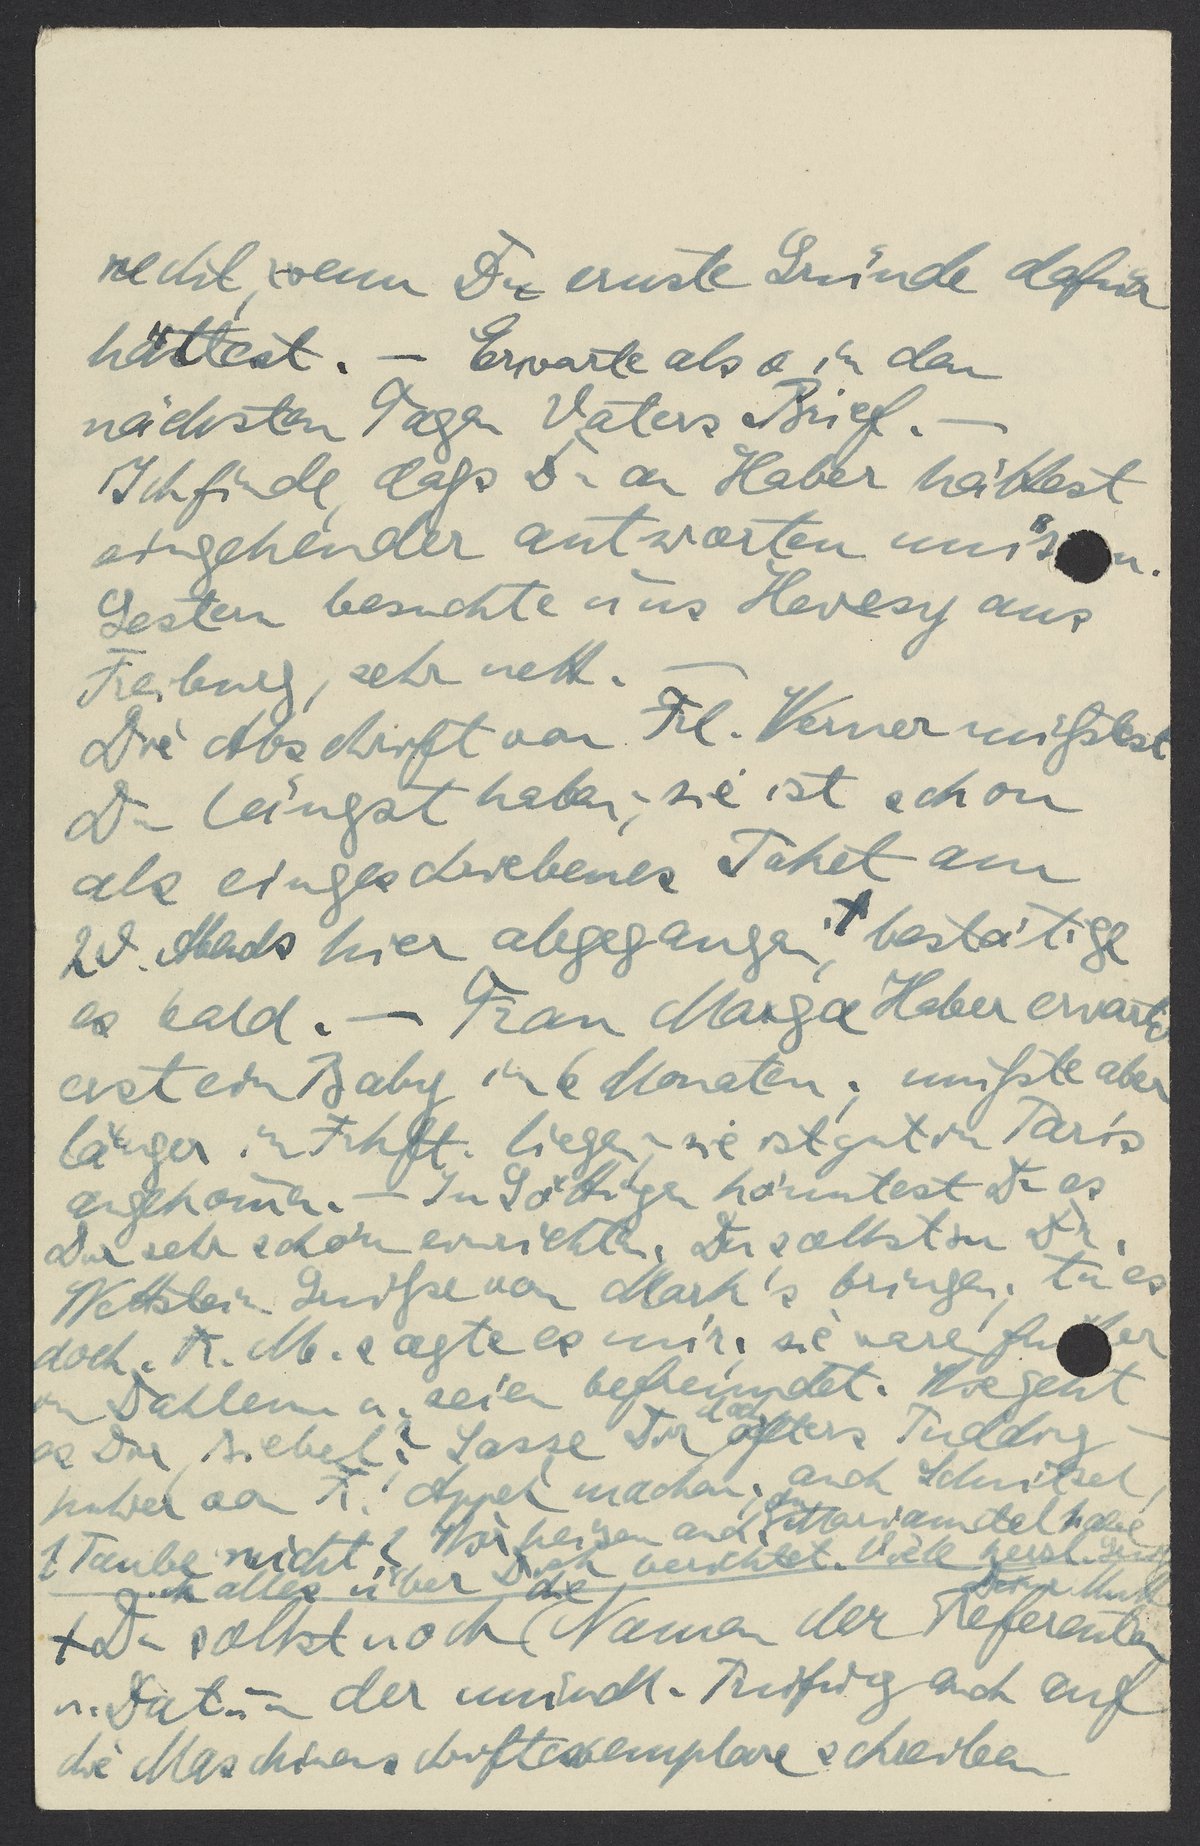 recht, wenn Du ernste Gründe dafür
hättest. – Erwarte also in den
nächsten Tagen Vaters Brief. –
Ich finde, daß Du an Haber hättest
eingehender antworten müssen.
Gestern besuchte uns Hevesy aus
Freiburg, sehr nett. –
Die Abschrift von Frl. Werner müßtest
Du längst haben, sie ist schon
als eingeschriebenes Paket am
Abends hier abgegangen, + bestätige
es bald. – Frau Marga Haber erwartet
erst ein Baby in 6 Monaten, mußte aber
länger in Frkft. liegen, sie ist gut in Paris
angekom̄en. – In Göttingen könntest Du es
Dir sehr schön einrichten. Du sollst zu Dr.
Wettstein Grüße von Mark's bringen, tu es
doch. Fr. M. sagte es mir, sie waren früher
in Dahlem u. seien befreundet. Wie geht
es Dir, Biebel? Lasse Dir doch öfters Pudding-
pulver von Fr. Appel machen, auch Schnitzel,
1 Taube nicht? Wir heizen auch. Mariandel habe
ich alles über Dich berichtet. Viele herzl. Grüße
Deine Mutt
+ Du sollst noch (die Namen der Referenten
u. Datum der mündl. Prüfung auch auf
die Maschinenschriftexemplare schreiben